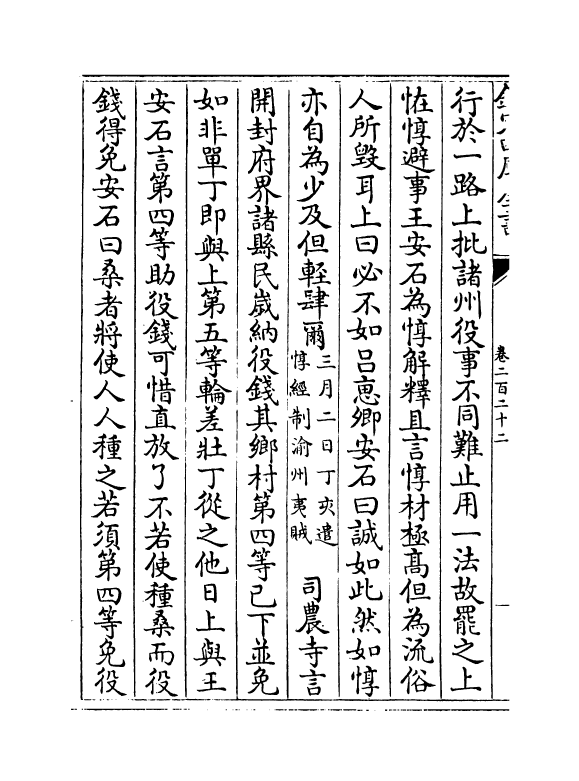 卷二百二十二
行於一路上批諸州役事不同難止用一法故罷之上
恠惇避事王安石為惇解釋且言惇材極髙但為流俗
人所毀耳上曰必不如吕惠卿安石曰誠如此然如惇
亦自為少及但輕肆爾三月二日丁亥遣惇經制渝州夷賊 司農寺言
開封府界諸縣民歲納役錢其鄉村第四等已下並免
如非單丁即與上第五等輪差壯丁從之他日上與王
安石言第四等助役錢可惜直放了不若使種桑而役
錢得免安石曰桑者將使人人種之若須第四等免役